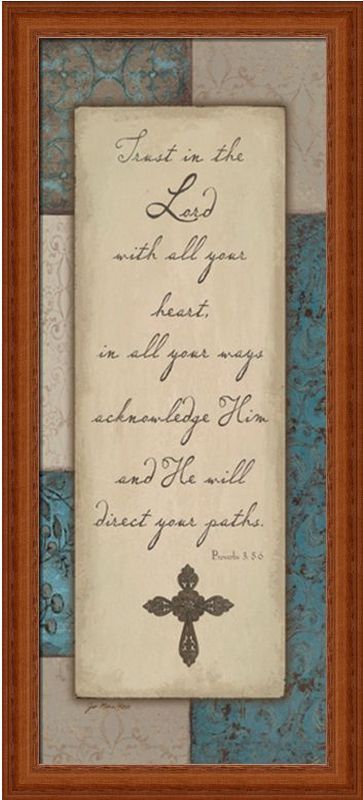 Trust in the
Lord
with all your
heart,
in all your ways
acknowledge Him
and He will
direct your paths.
Proverbs 3: 5-6